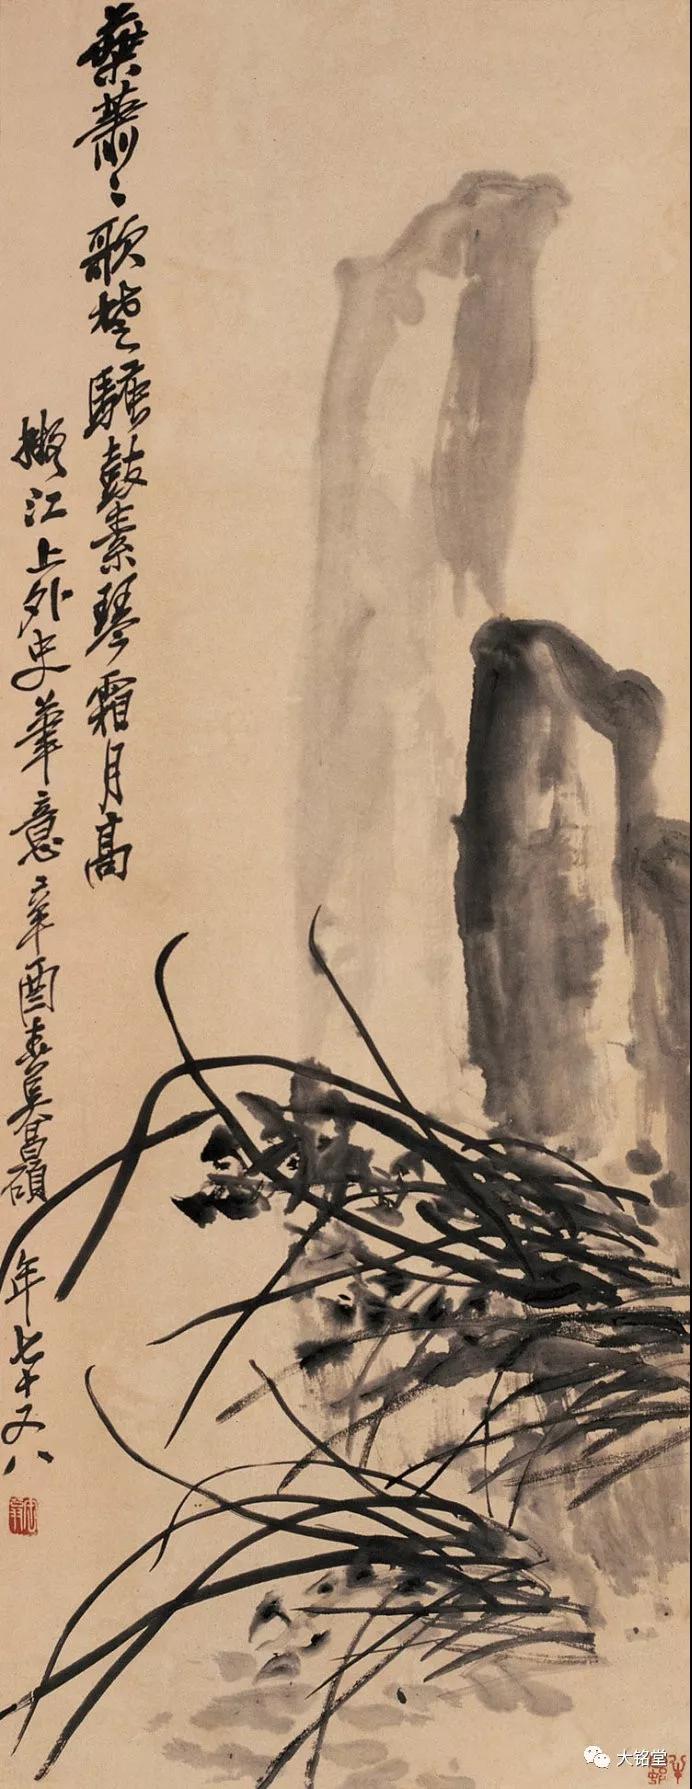 葉蕭〻歌楚騷鼓素琴霜月高
擬江上外史筆意辛酉春吳昌碩年七十又八
大铭堂